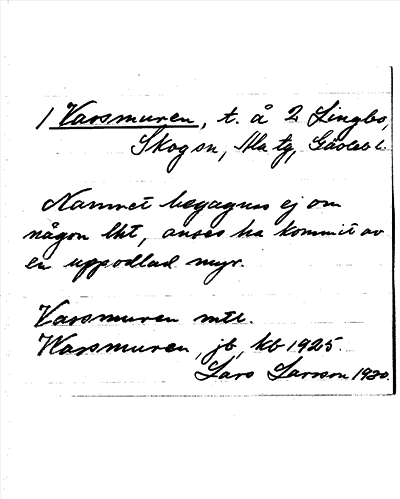 1 Varsmuren, t. å 2 Lingbo,
Skog sn, Ala tg, Gävleb l.
Namnet begagnas ej om
någon lht, anses ha kommit av
en uppodlad myr.
Varsmuren mtl.
Warsmuren jb, kb 1925.
Lars Larsson 1930.